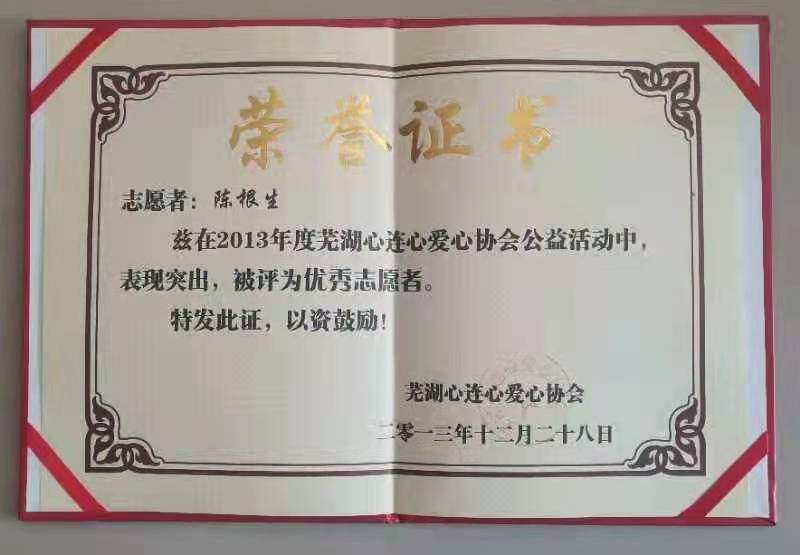 荣誉证书
志愿者：陈根生
兹在2013年度芜湖心连心爱心协会公益活动中，
表现突出，被评为优秀志愿者。
特发此证，以资鼓励！
芜湖心连心爱心协会
二零一三年十二月二十八日